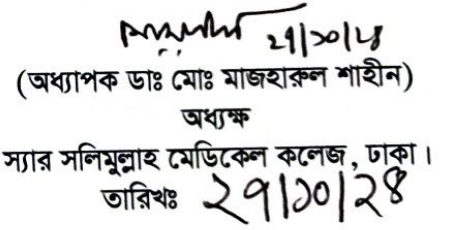 ২৭/১০/২৪
(অধ্যাপক ডাঃ মোঃ মাজহারুল শাহীন)
অধ্যক্ষ
স্যার সলিমুল্লাহ মেডিকেল কলেজ, ঢাকা।
তারিখঃ ২৭/১০/২৪